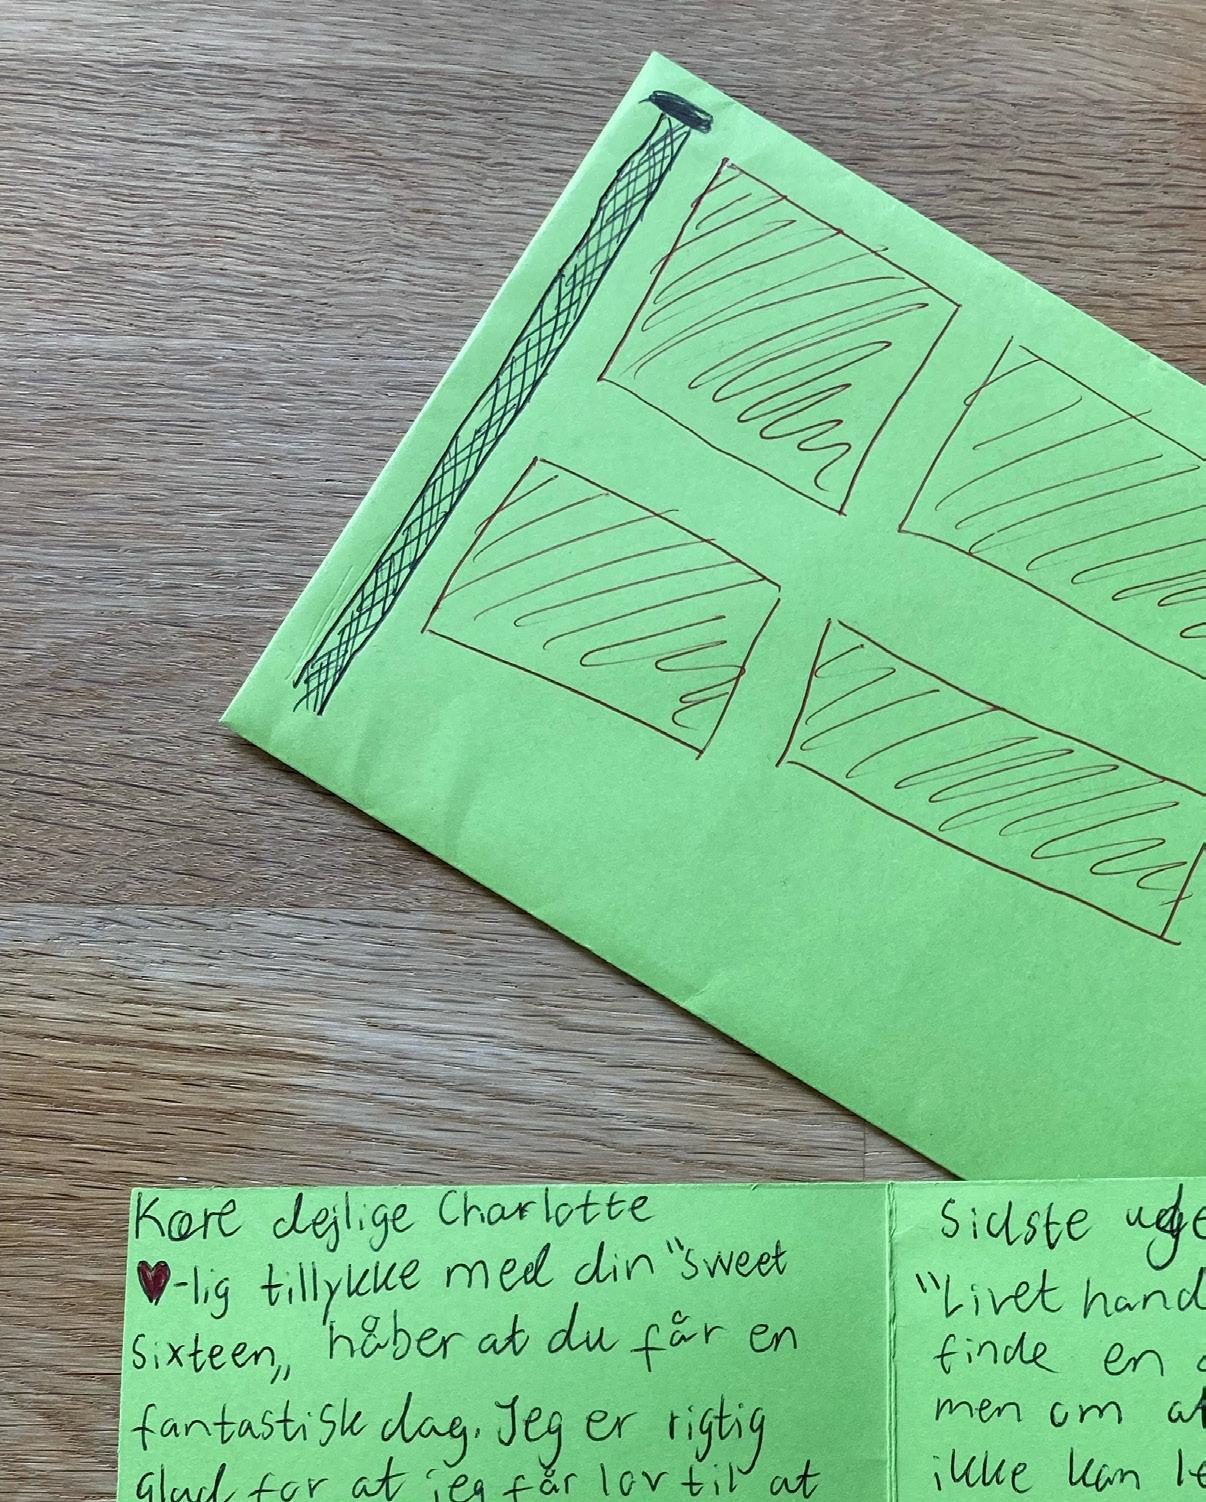 Kære dejlige Charlotte
♥-lig tillykke med din "sweet
sixteen„ håber at du får en
fantastisk dag. Jeg er rigtig
glad for at jeg får lov til at
Sidste uge
"Livet hand
finde en
men om at
ikke kan le